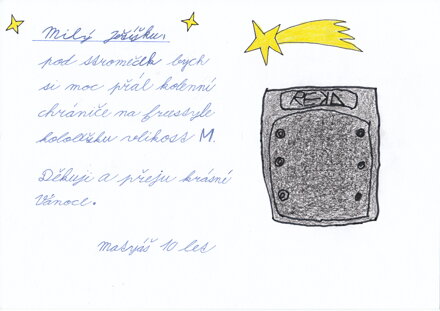 Milý Ježíšku,
pod stromeček bych
si moc přál kolenní
chrániče na freestyle
koloběžku velikost M.
Děkuji a přeju krásné
Vánoce.
Matyáš 10 let
REKD